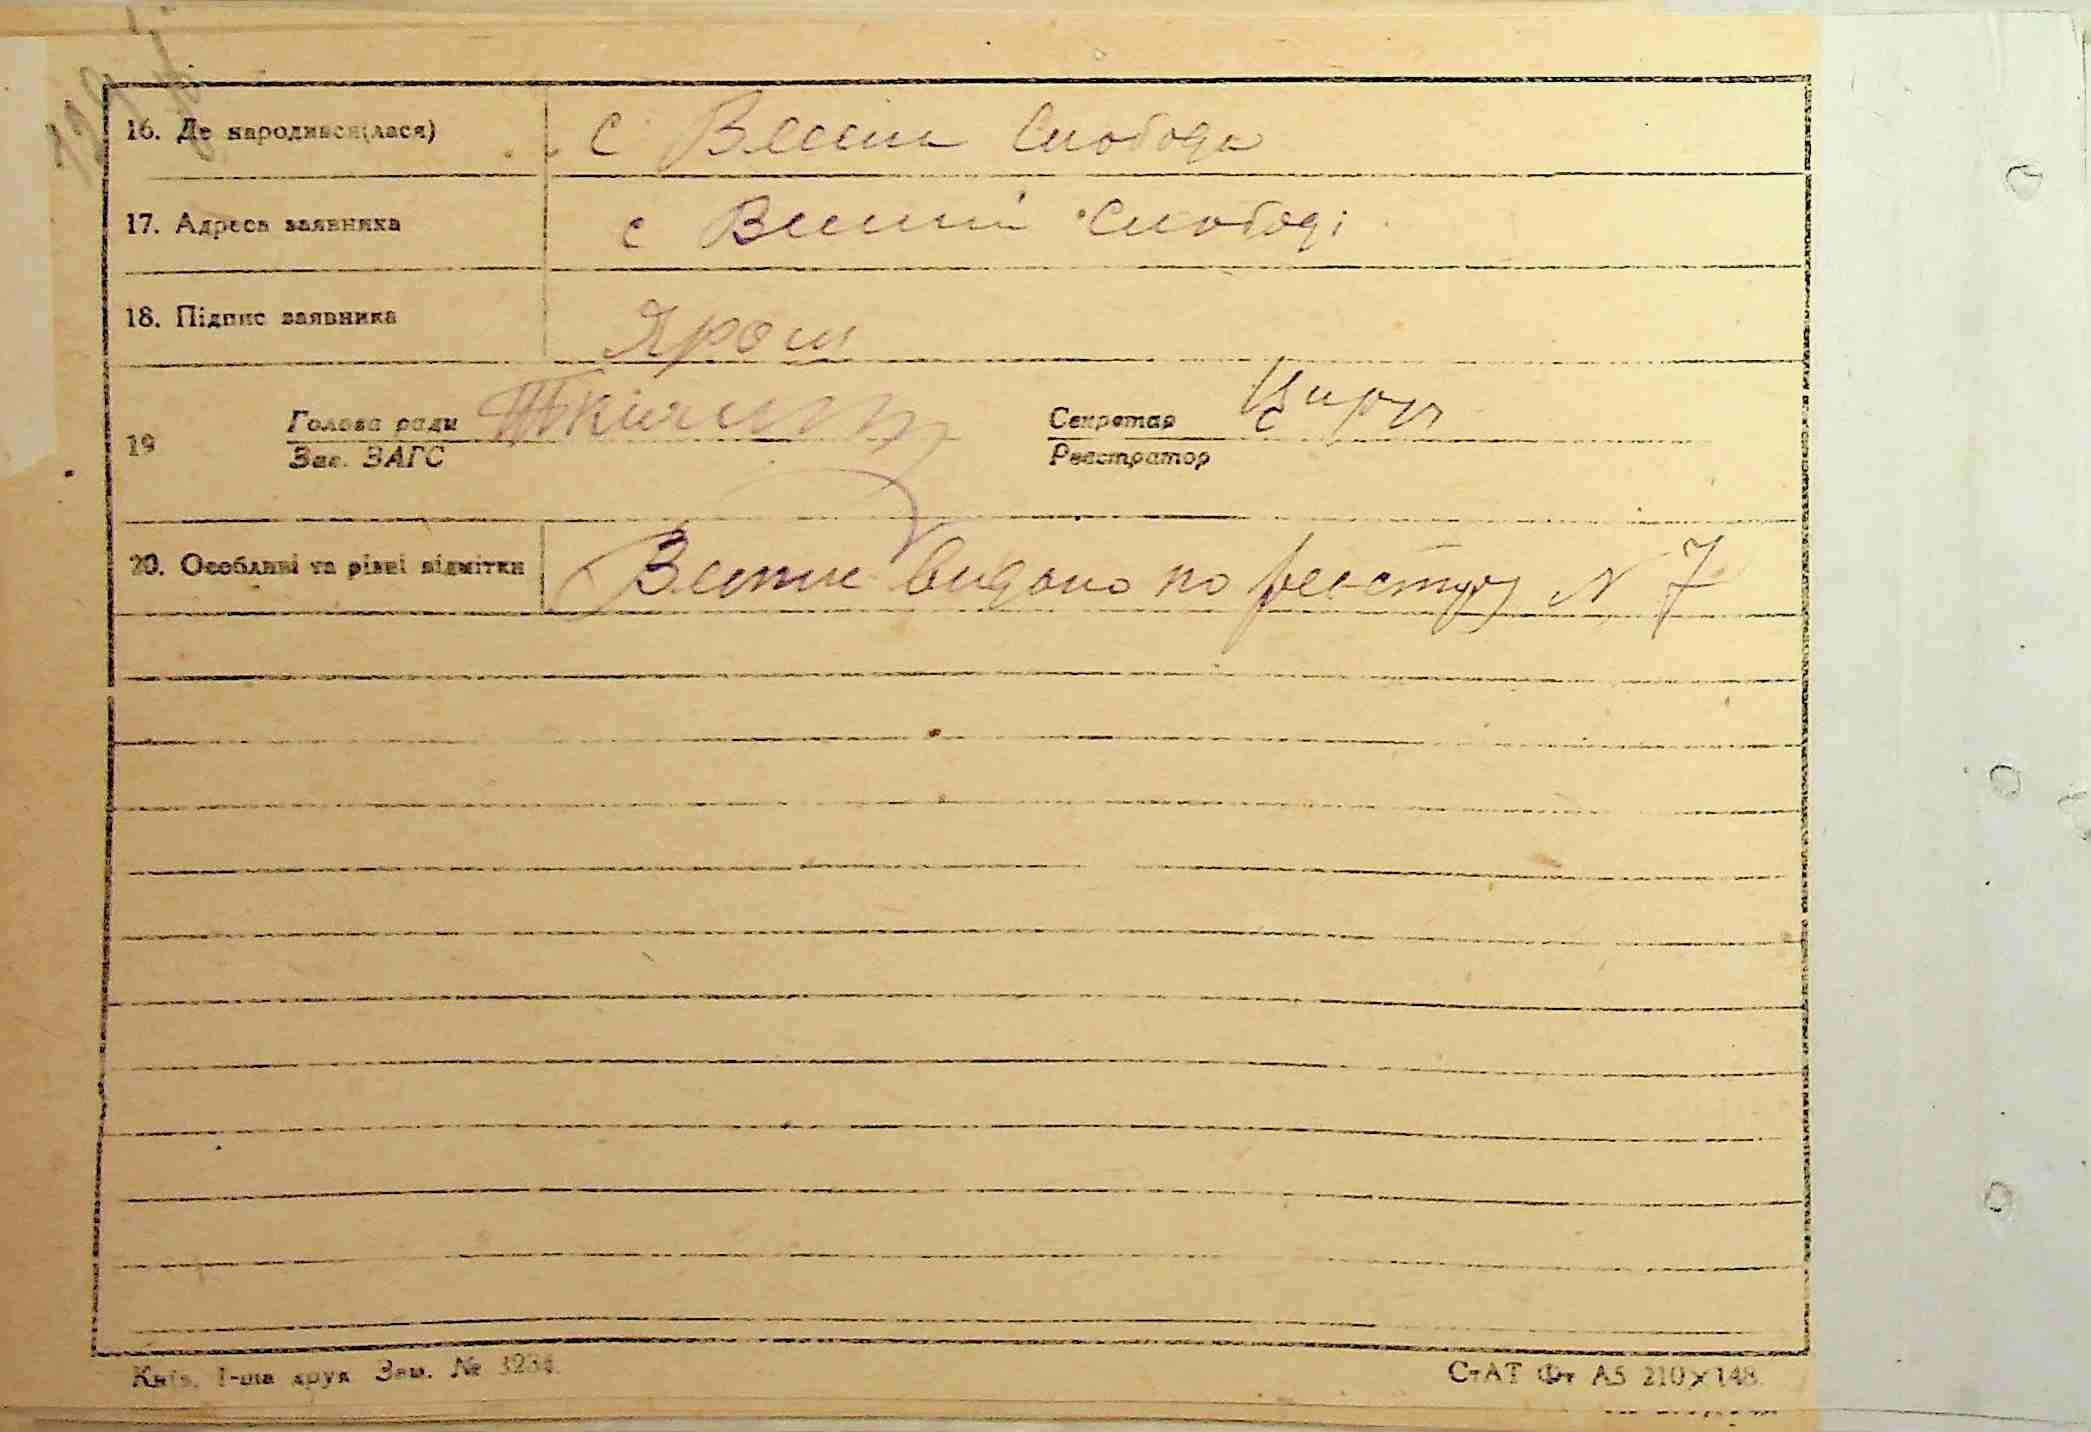 16. Де народився(лася) с Слобода
17. Адреса заявника с Слободі
18. Підпис заявника Ярош
19 Голова ради Секретар
Зав. ЗАГС Реєстратор
20. Особливі та різні відмітки видано по реєстру N 7
Київ, 1-ша друк Зам. № 3234.
СтАТ Фт А5 210×148.